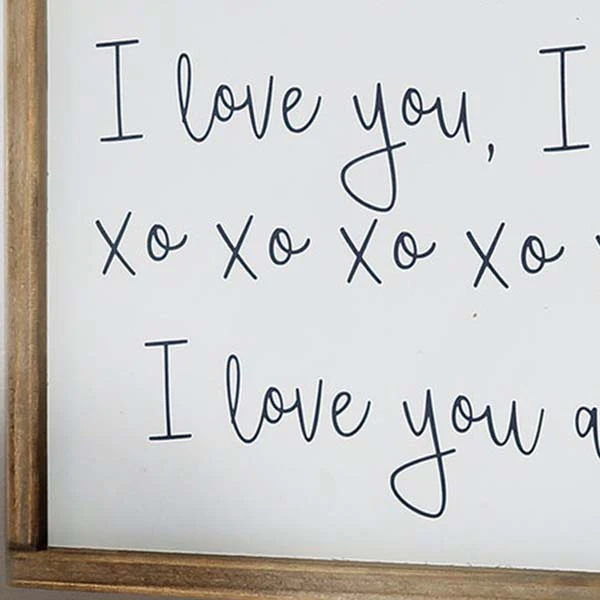 I love you, I
xo xo xo xo
I love you a